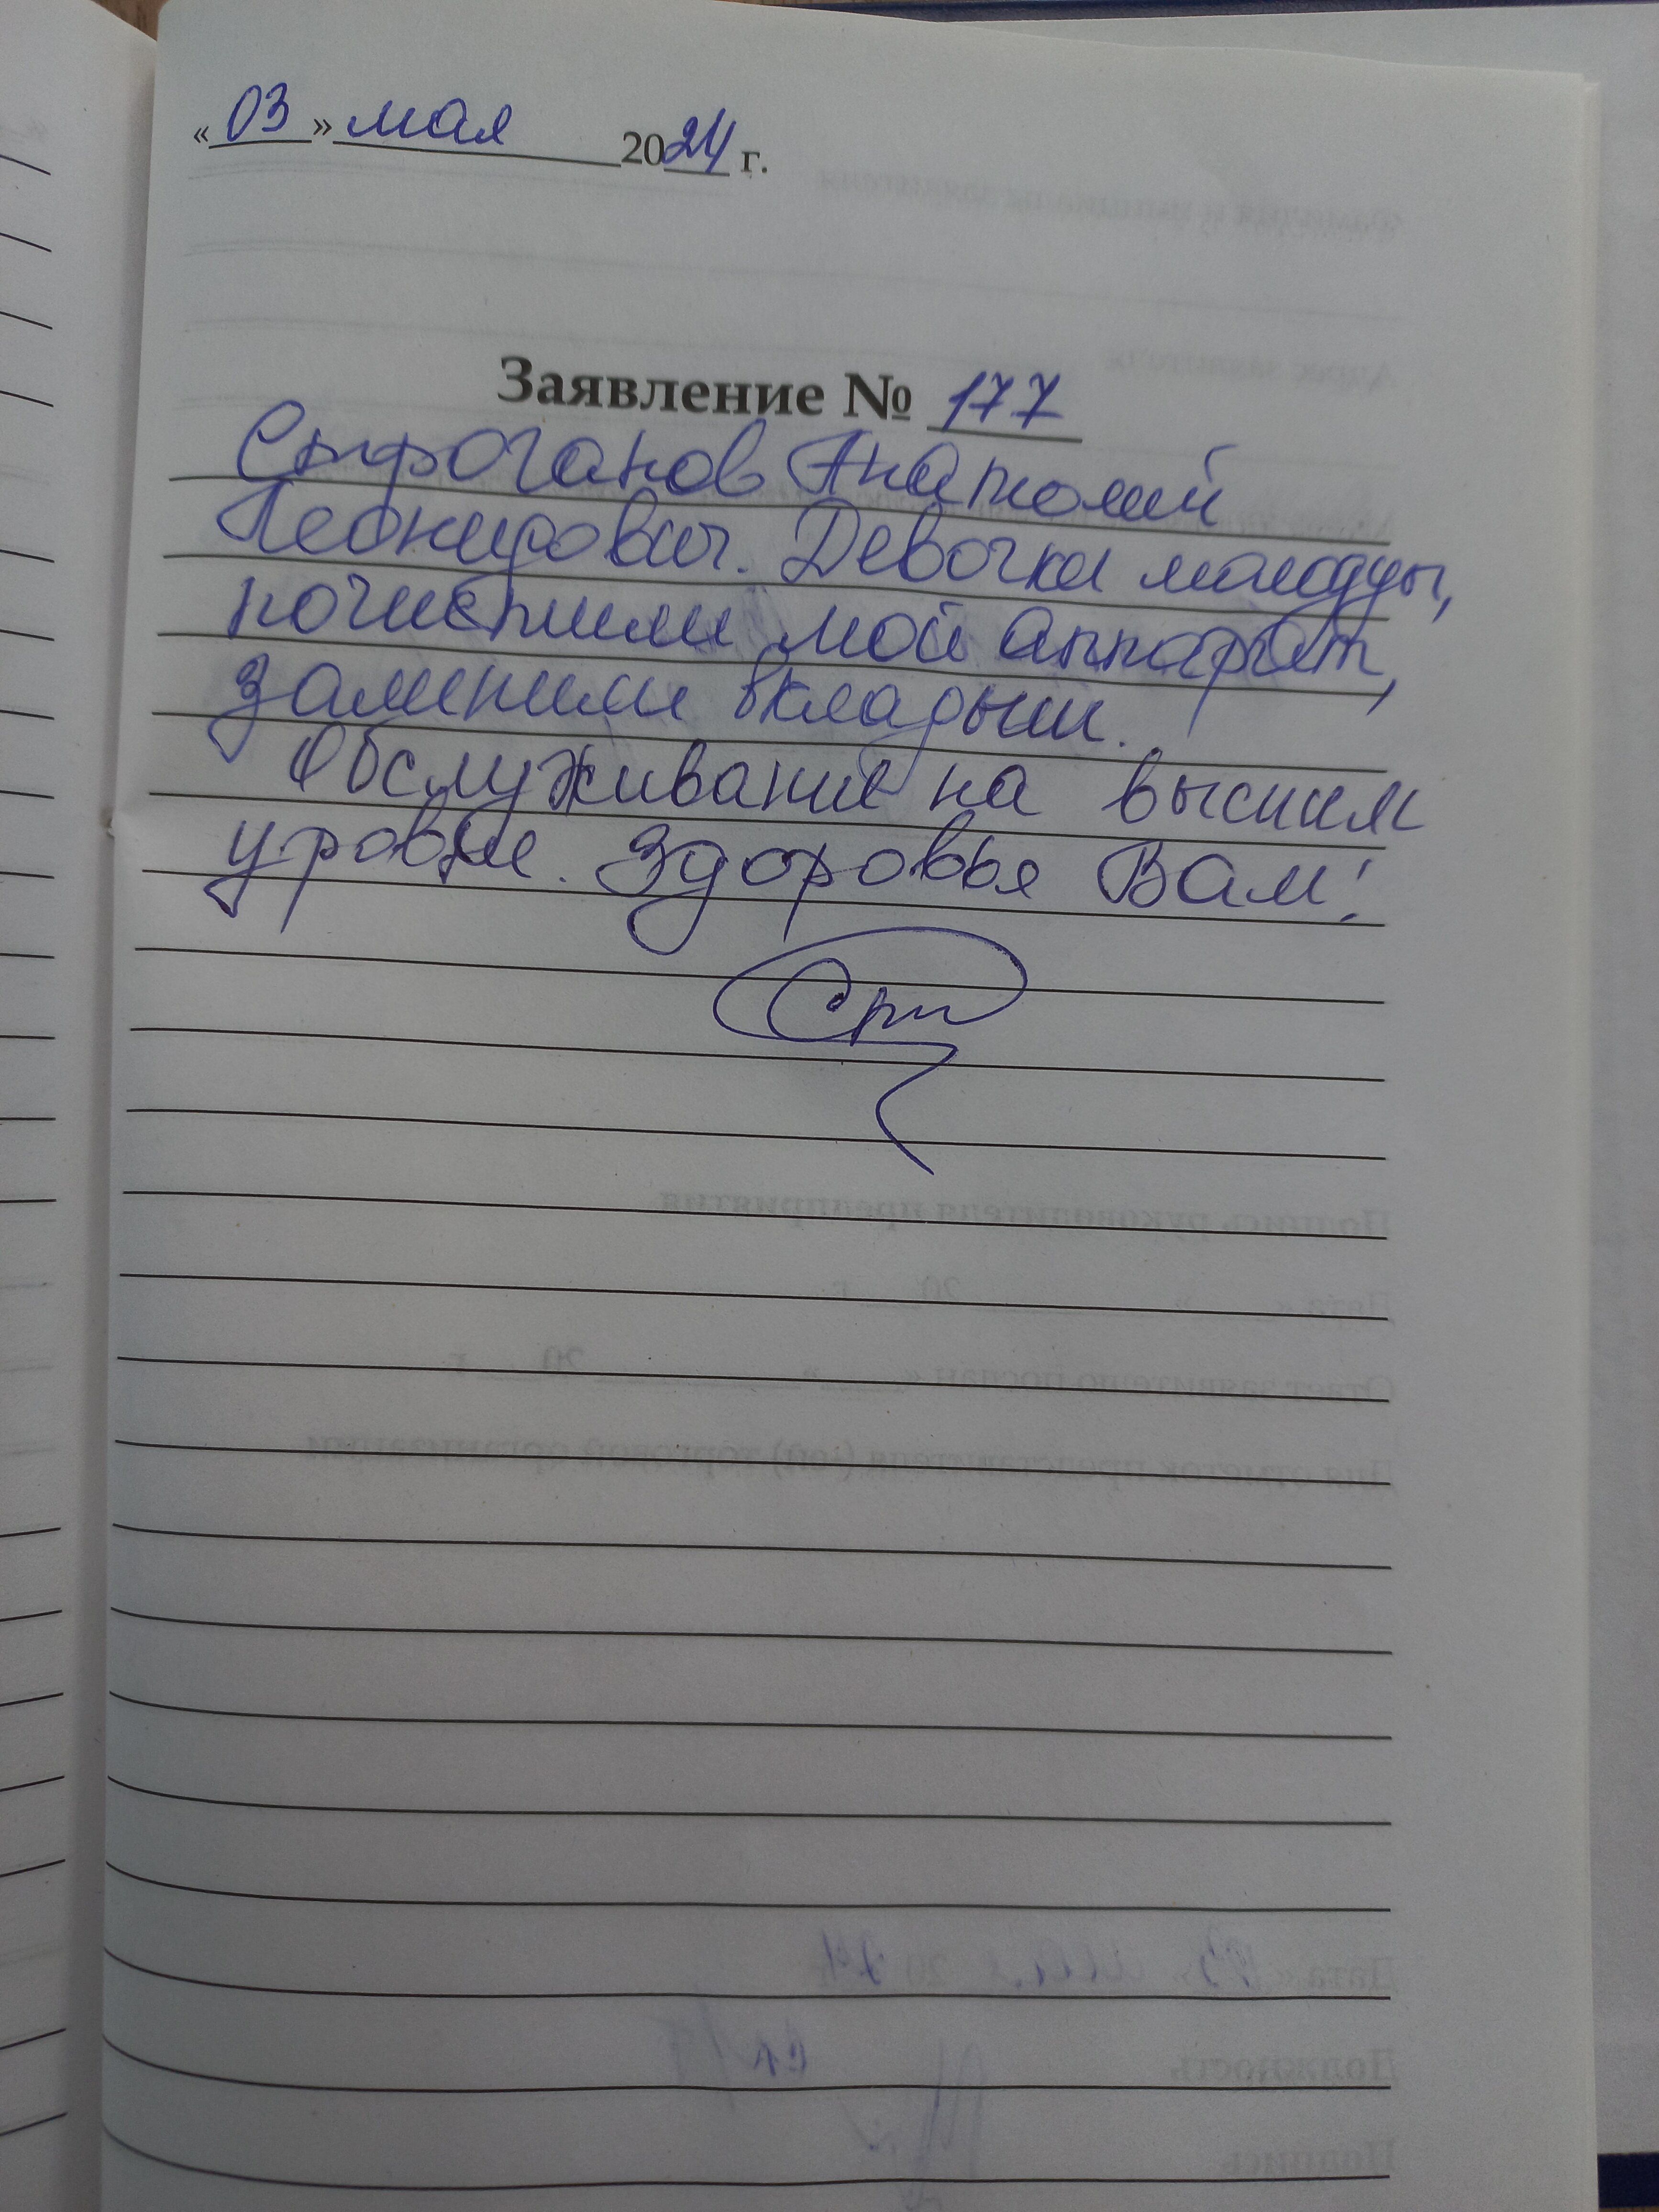 «03» мая 2024 г.
Заявление № 177
Строганов Анатолий
Леонидович. Девочки молодцы,
почистили мой аппарат,
заменили вкладыши.
Обслуживание на высшем
уровне. Здоровья Вам!